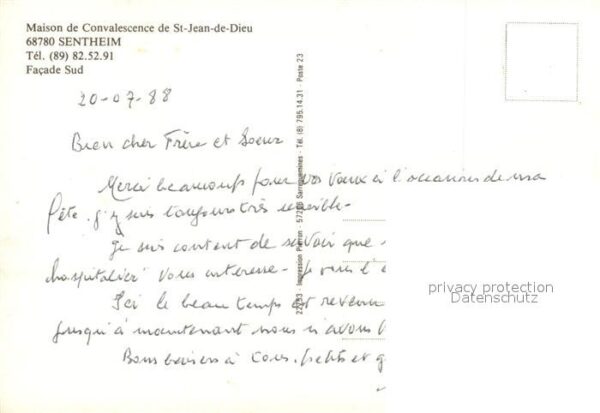 Maison de Convalescence de St-Jean-de-Dieu
68780 SENTHEIM
Tél. (89) 82.52.91
Façade Sud
20-07-88
Bien cher Frère et Soeur
Merci beaucoup pour vos vœux à l'occasion de ma
fête. j'y suis toujours très sensible-
Je suis content de savoir que
hospitalier" vous intéresse- Je vous l'e
Ici le beau temps est revenu
jusqu'à maintenant nous n'avons
Bons baisers à tous. petits et g
22753 - Impression Pierron - 57206 Sarreguemines - Tél. (8) 795.14.31 - Poste 23
privacy protection
Datenschutz